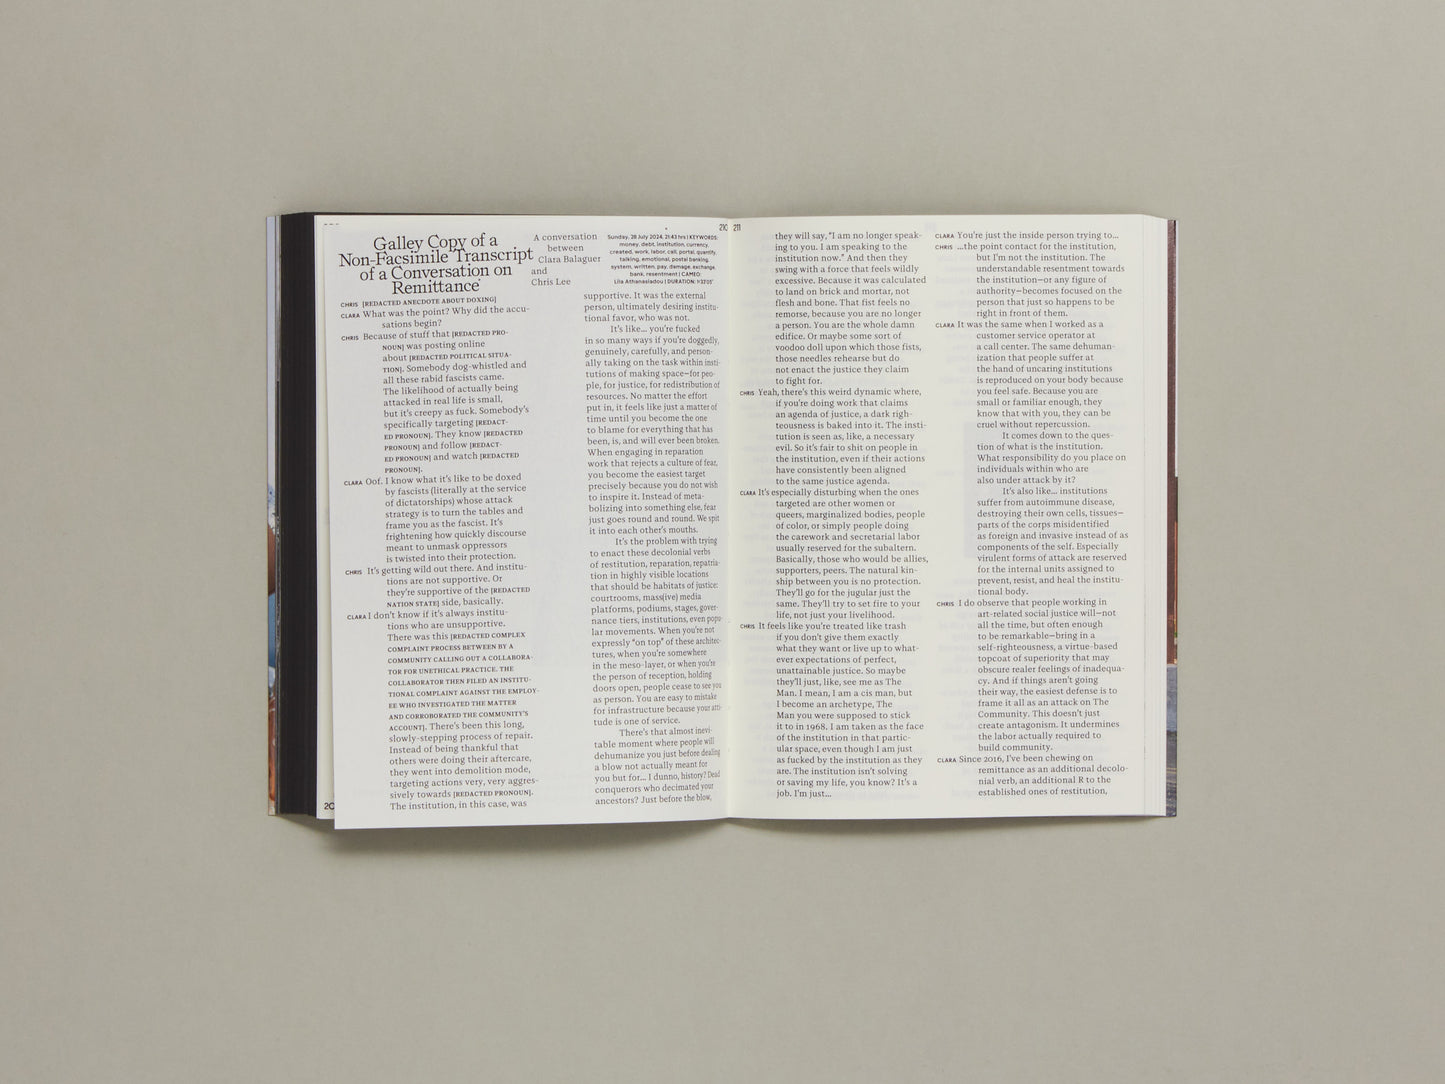 210
211
Galley Copy of a
Non-Facsimile Transcript
of a Conversation on
Remittance
A conversation
between
Clara Balaguer
and
Chris Lee
Sunday, 28 July 2024, 21:43 hrs | KEYWORDS:
money, debt, institution, currency,
created, work, labor, call, portal, quantity,
talking, emotional, postal banking,
system, written, pay, damage, exchange,
bank, resentment | CAMEO:
Lila Athanasiadou | DURATION:
CHRIS [REDACTED ANECDOTE ABOUT DOXING]
CLARA What was the point? Why did the accu-
sations begin?
CHRIS Because of stuff that [REDACTED PRO-
NOUN] was posting online
about [REDACTED POLITICAL SITUA-
TION]. Somebody dog-whistled and
all these rabid fascists came.
The likelihood of actually being
attacked in real life is small,
but it's creepy as fuck. Somebody's
specifically targeting [REDACT-
ED PRONOUN]. They know [REDACTED
PRONOUN] and follow [REDACT-
ED PRONOUN] and watch [REDACTED
PRONOUN].
CLARA Oof. I know what it's like to be doxed
by fascists (literally at the service
of dictatorships) whose attack
strategy is to turn the tables and
frame you as the fascist. It's
frightening how quickly discourse
meant to unmask oppressors
is twisted into their protection.
CHRIS It's getting wild out there. And institu-
tions are not supportive. Or
they're supportive of the [REDACTED
NATION STATE] side, basically.
CLARA I don't know if it's always institu-
tions who are unsupportive.
There was this [REDACTED COMPLEX
COMPLAINT PROCESS BETWEEN BY A
COMMUNITY CALLING OUT A COLLABORA-
TOR FOR UNETHICAL PRACTICE. THE
COLLABORATOR THEN FILED AN INSTITU-
TIONAL COMPLAINT AGAINST THE EMPLOY-
EE WHO INVESTIGATED THE MATTER
AND CORROBORATED THE COMMUNITY'S
ACCOUNT]. There's been this long,
slowly-stepping process of repair.
Instead of being thankful that
others were doing their aftercare,
they went into demolition mode,
targeting actions very, very aggres-
sively towards [REDACTED PRONOUN].
The institution, in this case, was
supportive. It was the external
person, ultimately desiring institu-
tional favor, who was not.
It's like... you're fucked
in so many ways if you're doggedly,
genuinely, carefully, and person-
ally taking on the task within insti-
tutions of making space—for peo-
ple, for justice, for redistribution of
resources. No matter the effort
put in, it feels like just a matter of
time until you become the one
to blame for everything that has
been, is, and will ever been broken.
When engaging in reparation
work that rejects a culture of fear,
you become the easiest target
precisely because you do not wish
to inspire it. Instead of meta-
bolizing into something else, fear
just goes round and round. We spit
it into each other's mouths.
It's the problem with trying
to enact these decolonial verbs
of restitution, reparation, repatria-
tion in highly visible locations
that should be habitats of justice:
courtrooms, mass(ive) media
platforms, podiums, stages, gover-
nance tiers, institutions, even popu-
lar movements. When you're not
expressly "on top" of these architec-
tures, when you're somewhere
in the meso-layer, or when you're
the person of reception, holding
doors open, people cease to see you
as person. You are easy to mistake
for infrastructure because your atti-
tude is one of service.
There's that almost inevi-
table moment where people will
dehumanize you just before dealing
a blow not actually meant for
you but for... I dunno, history? Dead
conquerors who decimated your
ancestors? Just before the blow,
they will say, "I am no longer speak-
ing to you. I am speaking to the
institution now." And then they
swing with a force that feels wildly
excessive. Because it was calculated
to land on brick and mortar, not
flesh and bone. That fist feels no
remorse, because you are no longer
a person. You are the whole damn
edifice. Or maybe some sort of
voodoo doll upon which those fists,
those needles rehearse but do
not enact the justice they claim
to fight for.
CHRIS Yeah, there's this weird dynamic where,
if you're doing work that claims
an agenda of justice, a dark righ-
teousness is baked into it. The insti-
tution is seen as, like, a necessary
evil. So it's fair to shit on people in
the institution, even if their actions
have consistently been aligned
to the same justice agenda.
CLARA It's especially disturbing when the ones
targeted are other women or
queers, marginalized bodies, people
of color, or simply people doing
the carework and secretarial labor
usually reserved for the subaltern.
Basically, those who would be allies,
supporters, peers. The natural kin-
ship between you is no protection.
They'll go for the jugular just the
same. They'll try to set fire to your
life, not just your livelihood.
CHRIS It feels like you're treated like trash
if you don't give them exactly
what they want or live up to what-
ever expectations of perfect,
unattainable justice. So maybe
they'll just, like, see me as The
Man. I mean, I am a cis man, but
I become an archetype, The
Man you were supposed to stick
it to in 1968. I am taken as the face
of the institution in that partic-
ular space, even though I am just
as fucked by the institution as they
are. The institution isn't solving
or saving my life, you know? It's a
job. I'm just...
CLARA You're just the inside person trying to...
CHRIS ...the point contact for the institution,
but I'm not the institution. The
understandable resentment towards
the institution—or any figure of
authority—becomes focused on the
person that just so happens to be
right in front of them.
CLARA It was the same when I worked as a
customer service operator at
a call center. The same dehuman-
ization that people suffer at
the hand of uncaring institutions
is reproduced on your body because
you feel safe. Because you are
small or familiar enough, they
know that with you, they can be
cruel without repercussion.
It comes down to the ques-
tion of what is the institution.
What responsibility do you place on
individuals within who are
also under attack by it?
It's also like... institutions
suffer from autoimmune disease,
destroying their own cells, tissues—
parts of the corps misidentified
as foreign and invasive instead of as
components of the self. Especially
virulent forms of attack are reserved
for the internal units assigned to
prevent, resist, and heal the institu-
tional body.
CHRIS I do observe that people working in
art-related social justice will—not
all the time, but often enough
to be remarkable—bring in a
self-righteousness, a virtue-based
topcoat of superiority that may
obscure realer feelings of inadequa-
cy. And if things aren't going
their way, the easiest defense is to
frame it all as an attack on The
Community. This doesn't just
create antagonism. It undermines
the labor actually required to
build community.
CLARA Since 2016, I've been chewing on
remittance as an additional decolo-
nial verb, an additional R to the
established ones of restitution,